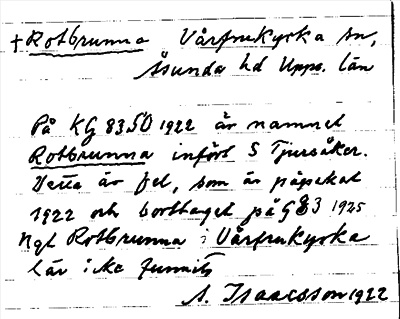 + Rotbrunna Vårfrukyrka sn,
Åsunda hd Upps. län
På KG 83 SO 1922 är namnet
Rotbrunna infört S Tjursåker.
Detta är fel, som är påpekat
1922 och borttaget på G83 1925
Ngt Rotbrunna i Vårfrukyrka
lär icke funnits
A. Isaacsson 1922